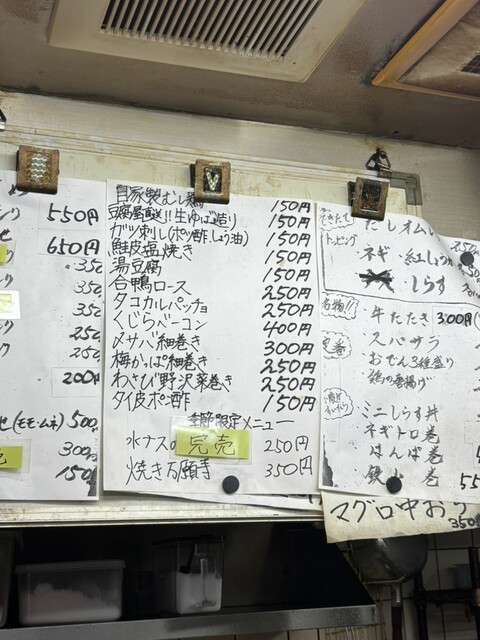 550円
650円
350
350
350
250
250
200円
(モモ・ムネ) 500
300
150
自家製むし鶏 150円
豆腐屋直送!!生ゆば造り 150円
ガツ刺し(ポン酢、しょう油) 150円
鮭皮塩焼き 150円
湯豆腐 150円
合鴨ロース 250円
タコカルパッチョ 250円
くじらベーコン 400円
〆サバ細巻き 300円
梅かっぱ細巻き 250円
わさび野沢菜巻き 250円
タイ皮ポン酢 150円
季節限定メニュー
水ナスの 完売 250円
焼き万願寺 350円
だしオムレ
トッピング
ネギ・紅しょうが
・しらす
名物!!
牛たたき 300円
定番
スパサラ
おでん3種盛り
鶏の唐揚げ
ミニしらす丼
ネギトロ巻
はんぱ巻
鉄火巻 55
マグロ中おち
350円